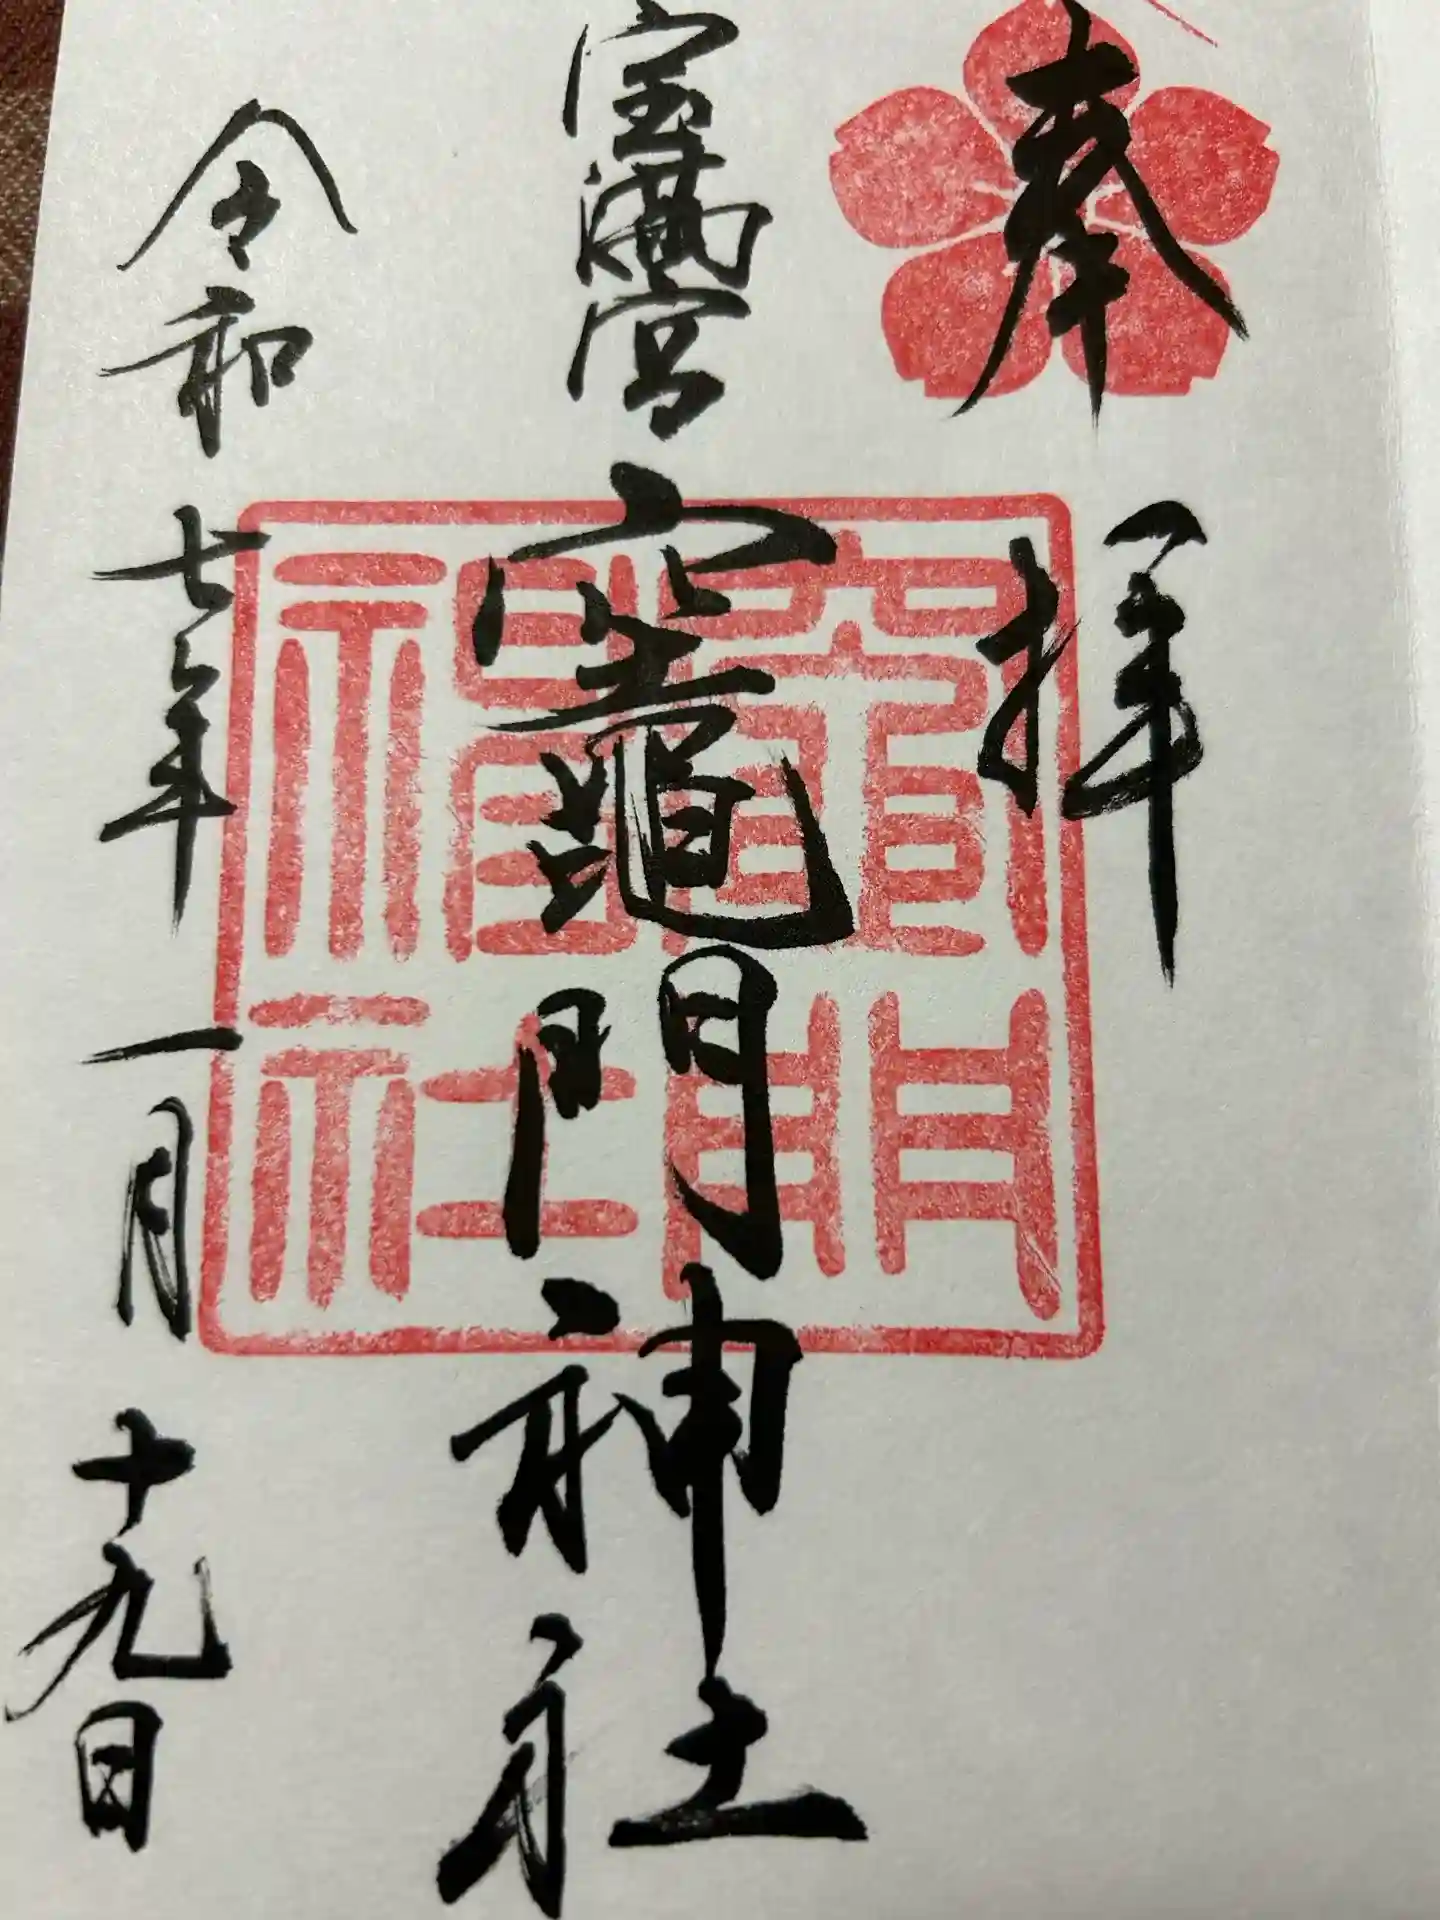 奉拝
宝満宮
竈門神社
竈門神社
令和七年一月十九日